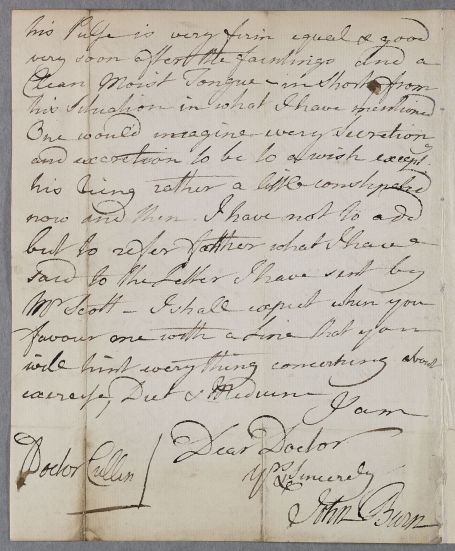 his Pulse is very firm equal & good
very soon after the faintings and a
Clean Moist Tongue - in Short from
his Situation in what I have mentiond
One would imagine every Secretion
and excretion to be to a wish except
his being rather a little constipated
now and then I have not to add
but to refer father what I have
said to the Letter I have sent by
Mr Scott - I shall expect when you
favour me with a Line that you
will hint everything concerning about
exercise, Diet & Medicin
I am
Dear Doctor
Yrs Sincerely
John Burn
Doctor Cullen